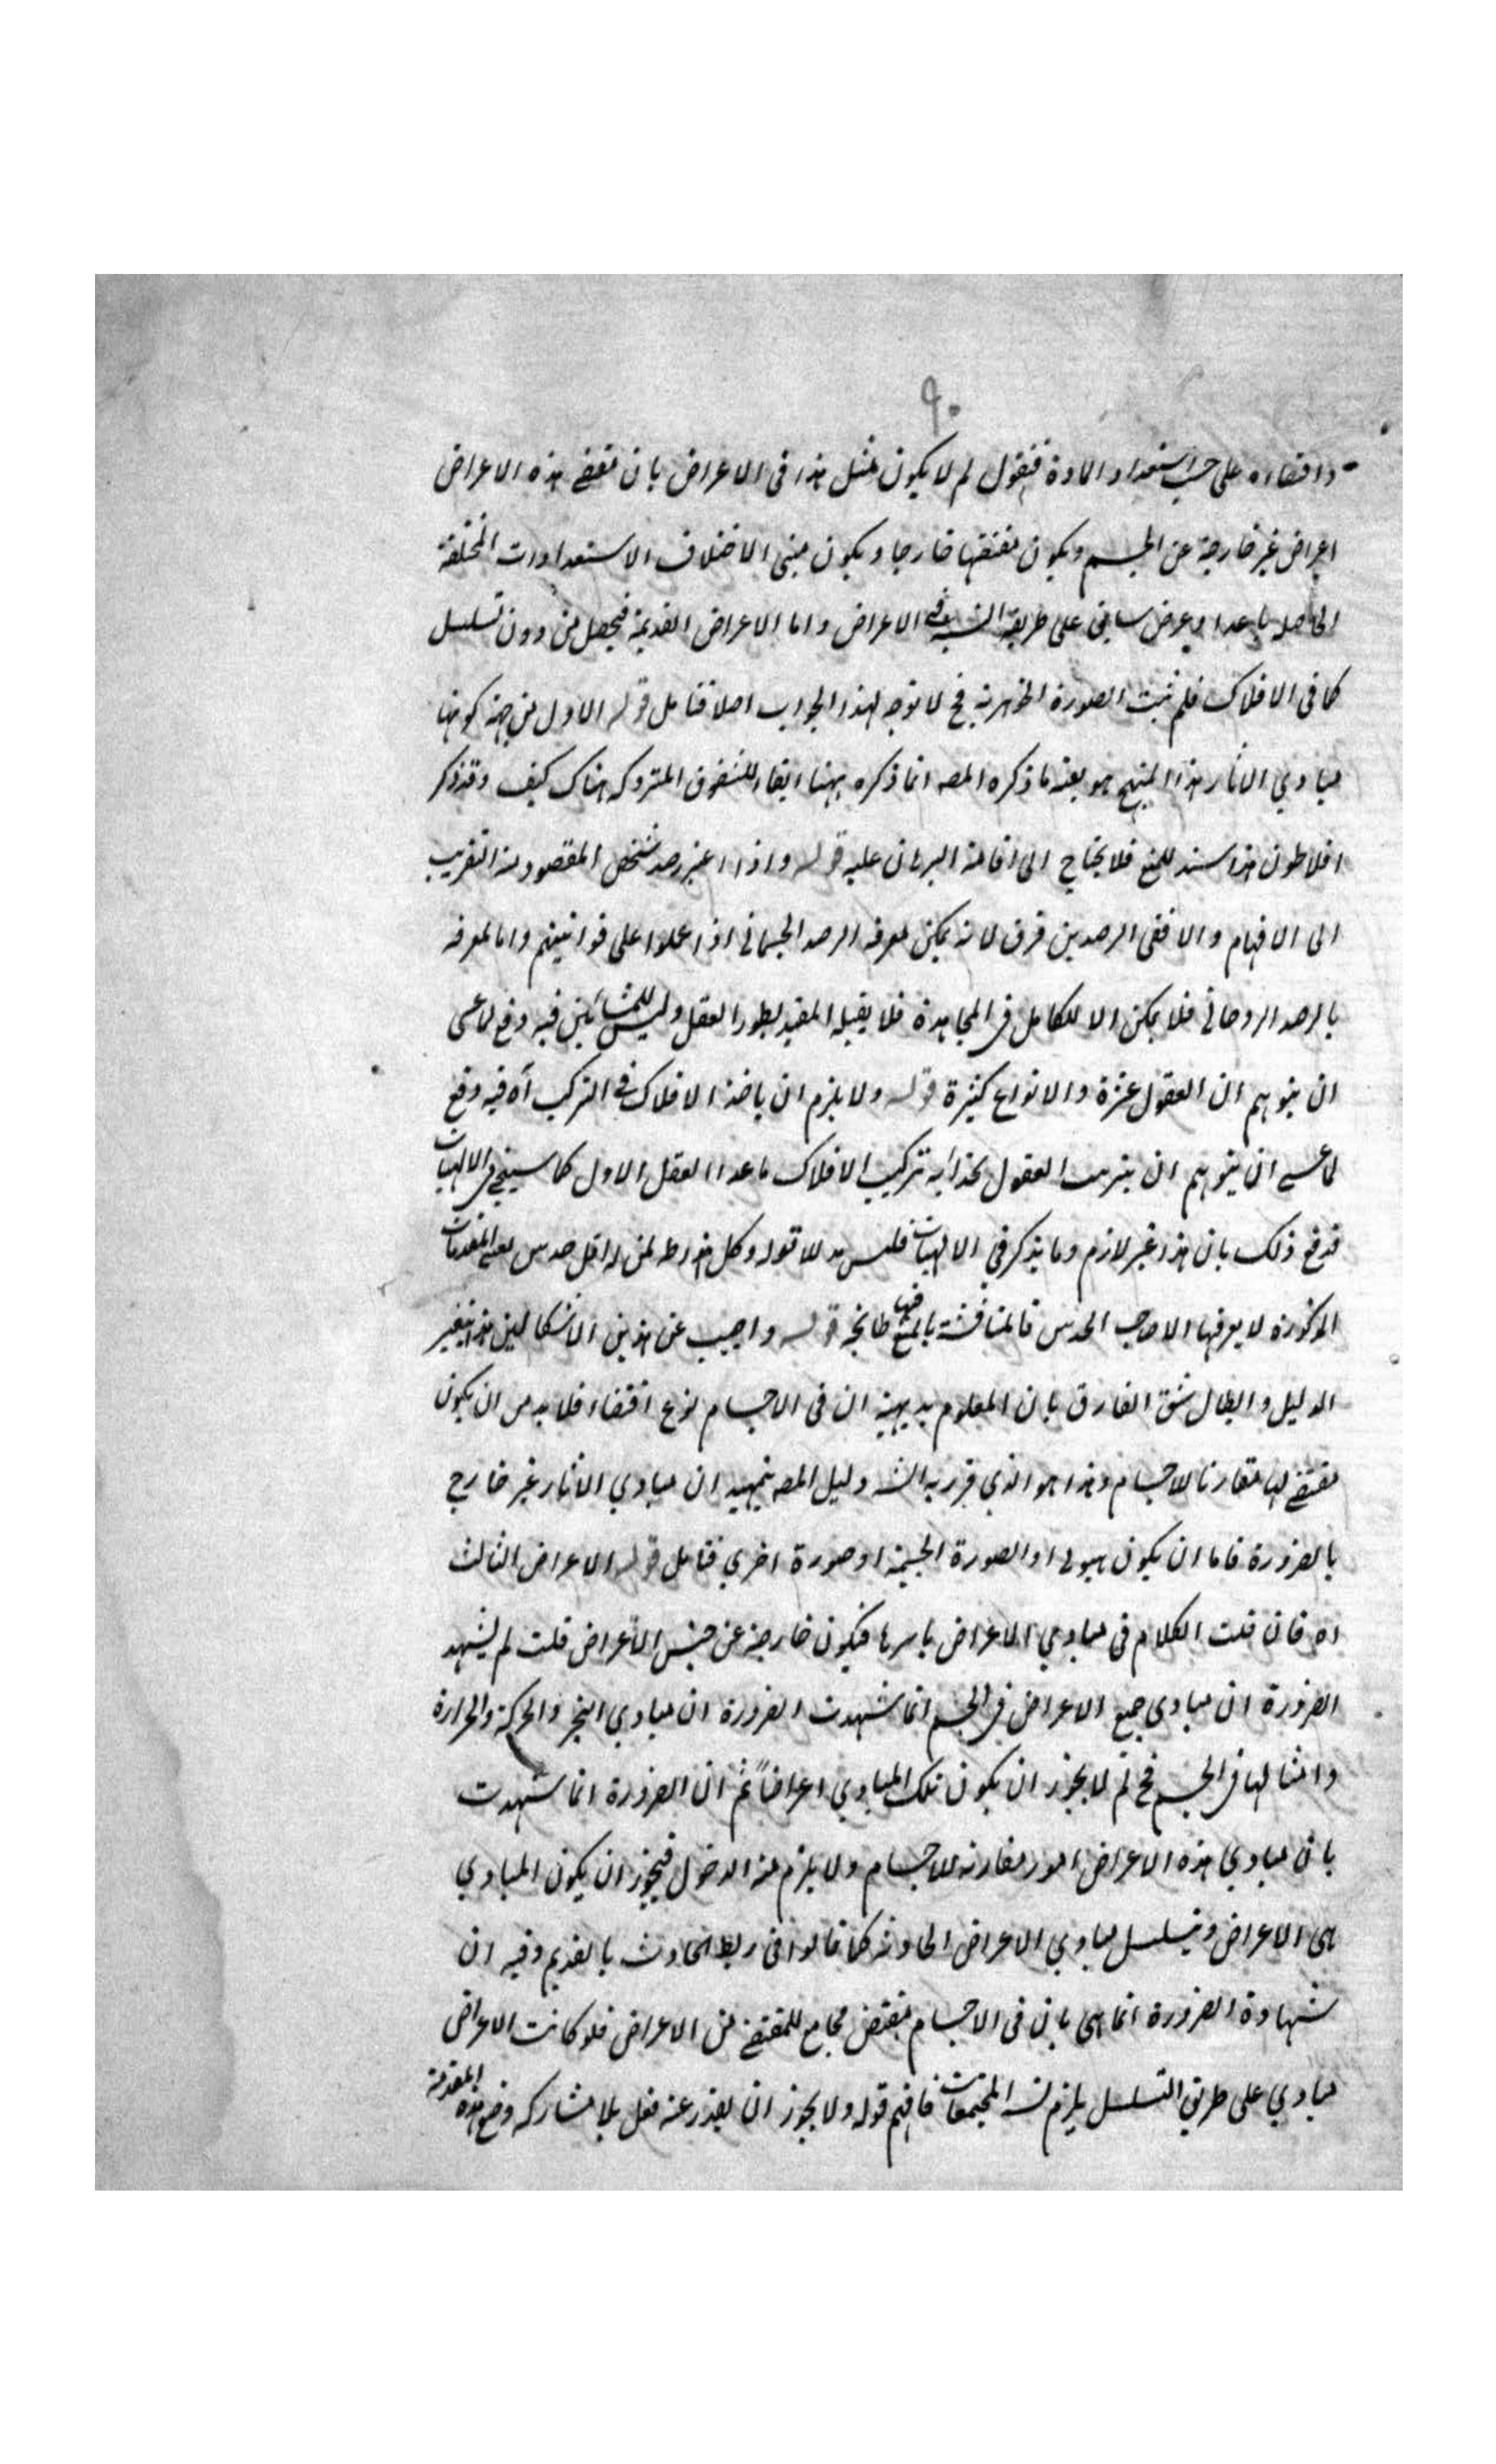 ٩٠
واقتضاءه على حسب استعداد المادة فنقول لم لا يكون مثل هذا فى الاعراض بان تقتضى هذه الاعراض
اعراض غير خارجة عن الجسم ويكون مقتضيها خارجا ويكون مبنى الاختلاف الاستعدادات المختلفة
الحاصلة باعداد عرض سابق على طريقة الاعراض واما الاعراض القديمة فيحصل من دون تسلسل
كما فى الافلاك فلم يثبت الصورة الجوهرية فح لا توجه لهذا الجواب اصلا فتامل قوله الاول من جهة كونها
مبادي الاثار هذا المنهج هو بعينه ما ذكره المصه انما ذكره ههنا ايفاء للشقوق المتروكه هناك كيف وقد ذكر
افلاطون هذا سند للمنع فلا يحتاج الى اقامة البرهان عليه قوله واذا اعتبر رصد شخص المقصود منه التقريب
الى الافهام والا ففى الرصدين فرق لانه يمكن لمعرفه الرصد الجسمانى اذا عملوا على قوانينهم واما لمعرفه
بالرصد الروحانى فلا يمكن الا للكامل فى المجاهدة فلا يقبله المقيد بطور العقل وليس للمشائين فيه دفع لما عسى
ان يتوهم ان العقول عشرة والانواع كثيرة قوله ولا يلزم ان ياخذ الافلاك فى الترتب آه فيه دفع
لما عسے ان يتوهم ان ترتب العقول بحذاء تركيب الافلاك ما عدا العقل الاول كما سيجئ فى الالهيات
فدفع ذلك بان هذا غير لازم وما يذكر في الالهيات فليس قوله وكل هذا لمن له اقل حدس المقدمات
المذكورة لا يعرفها الا صاحب الحدس فالمناقشة بالمنع فيها قوله واجيب عن هذين الاشكالين هذا تغيير
الدليل وابطال شق الفارق بان المعلوم بديهية ان فى الاجسام نوع اقتضاء فلابد من ان يكون
مقتضے لها مقارنا للاجسام وهذا هو الذي قرر به الشه دليل المصه بتمهيد ان مبادي الاثار غير خارج
بالضرورة فاما ان يكون هيولى او الصورة الجسمية او صورة اخرى فتامل قوله الاعراض الثالث
اه فان قلت الكلام فى مبادي الاعراض باسرها فيكون خارجة عن جنس الاعراض قلت لم يشهد
الضرورة ان مبادى جميع الاعراض فى الجسم انما شهدت الضرورة ان مبادي التحيز والحركة والحرارة
وامثالها فى الجسم فح لم لا يجوز ان يكون تلك المبادي اعراضاً ثم ان الضرورة انما شهدت
بان مبادي هذه الاعراض امور مقارنه للاجسام ولا يلزم منه الدخول فيجوز ان يكون المبادي
هى الاعراض ويتسلسل مبادي الاعراض الحادثه كما قالوا فى ربط الحادث بالقديم وفيه ان
شهادة الضرورة انما هى بان فى الاجسام مقتض مجامع للمقتضے من الاعراض فلو كانت الاعراض
مبادي على طريق التسلسل يلزم المجتمعات فافهم قوله ولا يجوز ان يصدر عنه فعل بلا مشاركه وضع هذه المقدمة